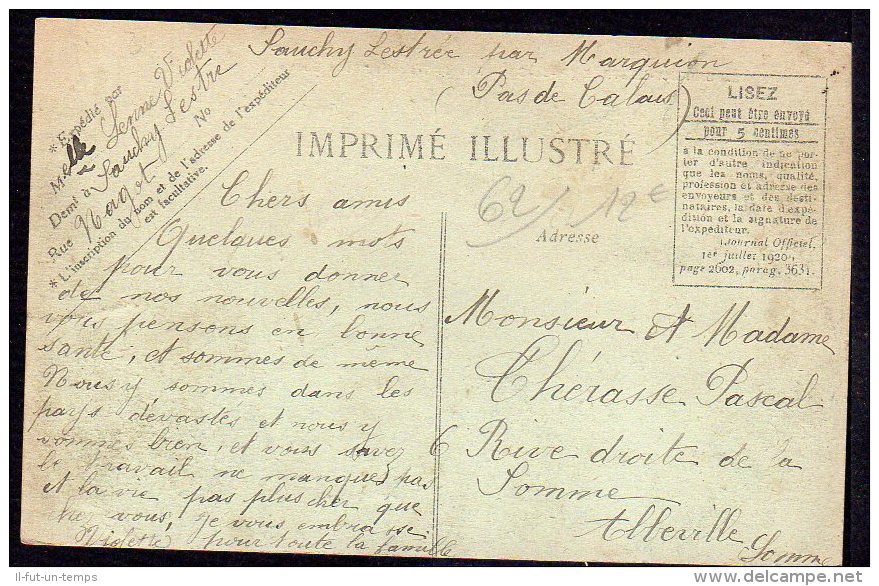 Sauchy Lestrée par Marquion
(Pas de Calais)
* Expédié par
Melle Violette
Demt à Sauchy Lestre
Rue Nagot No
* L'inscription du nom et de l'adresse de l'expéditeur
est facultative.
IMPRIMÉ ILLUSTRÉ
LISEZ
Ceci peut être envoyé
pour 5 centimes
à la condition de ne por-
ter d'autre indication
que les noms, qualité,
profession et adresse des
envoyeurs et des desti-
nataires, la date d'expé-
dition et la signature de
l'expéditeur.
(Journal Officiel,
1er juillet 1920,
page 2602, parag. 363).
62/ 12€
Adresse
Chers amis
Quelques mots
pour vous donner
de nos nouvelles, nous
vous pensons en bonne
santé, et sommes de même
Nous y sommes dans les
pays dévastés et nous y
sommes bien, et vous savez
le travail ne manque pas
et la vie pas plus cher que
chez vous, je vous embrasse
Violette pour toute la famille
Monsieur et Madame
Thérasse Pascal
6 Rive droite de la
Somme
Abbeville
Somme
Il-fut-un-temps
delcampe.net